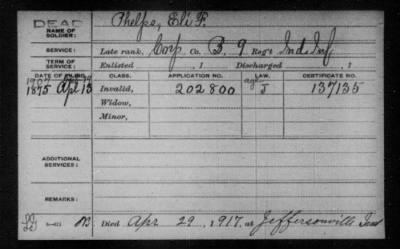 DEAD
NAME OF SOLDIER: Phelps, Eli F.
SERVICE: Late rank, Corp, Co. B. 9 Reg't Ind. Inf
TERM OF SERVICE: Enlisted , 1 Discharged , 1
DATE OF FILING. CLASS. APPLICATION NO. LAW. CERTIFICATE NO.
1907
1875 Apl 13 Invalid, 202800 J 137135
Widow,
Minor,
ADDITIONAL SERVICES:
REMARKS:
Died Apr 29, 1917, at Jeffersonville Ind